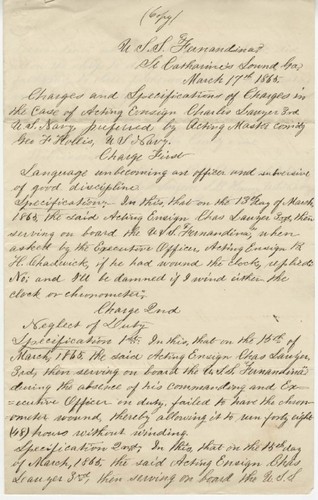 (Copy)
U.S.S. "Fernandina"
St Catharine's Sound Ga;
March 17th 1865.
Charges and Specifications of Charges in
the Case of Acting Ensign Charles Sawyer 3rd
U.S. Navy, preferred by Acting Master comdg
Geo F. Hollis, U.S. Navy.
Charge First
Language unbecoming an officer and subversive
of good discipline
Specification; In this, that on the 13th day of March,
1865, the said Acting Ensign Chas Sawyer 3rd, then
serving on board the U.S.S. "Fernandina," when
asked by the Executive Officer, Acting Ensign
H. Chadwick, if he had wound the clock, replied
No; and I'll be damned if I wind either the
clock or chronometer,"
Charge 2nd
Neglect of Duty
Specification 1st: In this, that on the 15th of
March, 1865, the said Acting Ensign Chas Sawyer,
3rd, then serving on board the U.S.S. "Fernandina"
during the absence of his commanding and Ex=
=ecutive Officer on duty, failed to have the chron=
ometer wound, thereby allowing it to run forty eight
(48) hours without winding.
Specification 2nd: In this, that on the 15th day
of March, 1865, the said Acting Ensign Chas
Sawyer 3rd, then serving on board the U.S.S